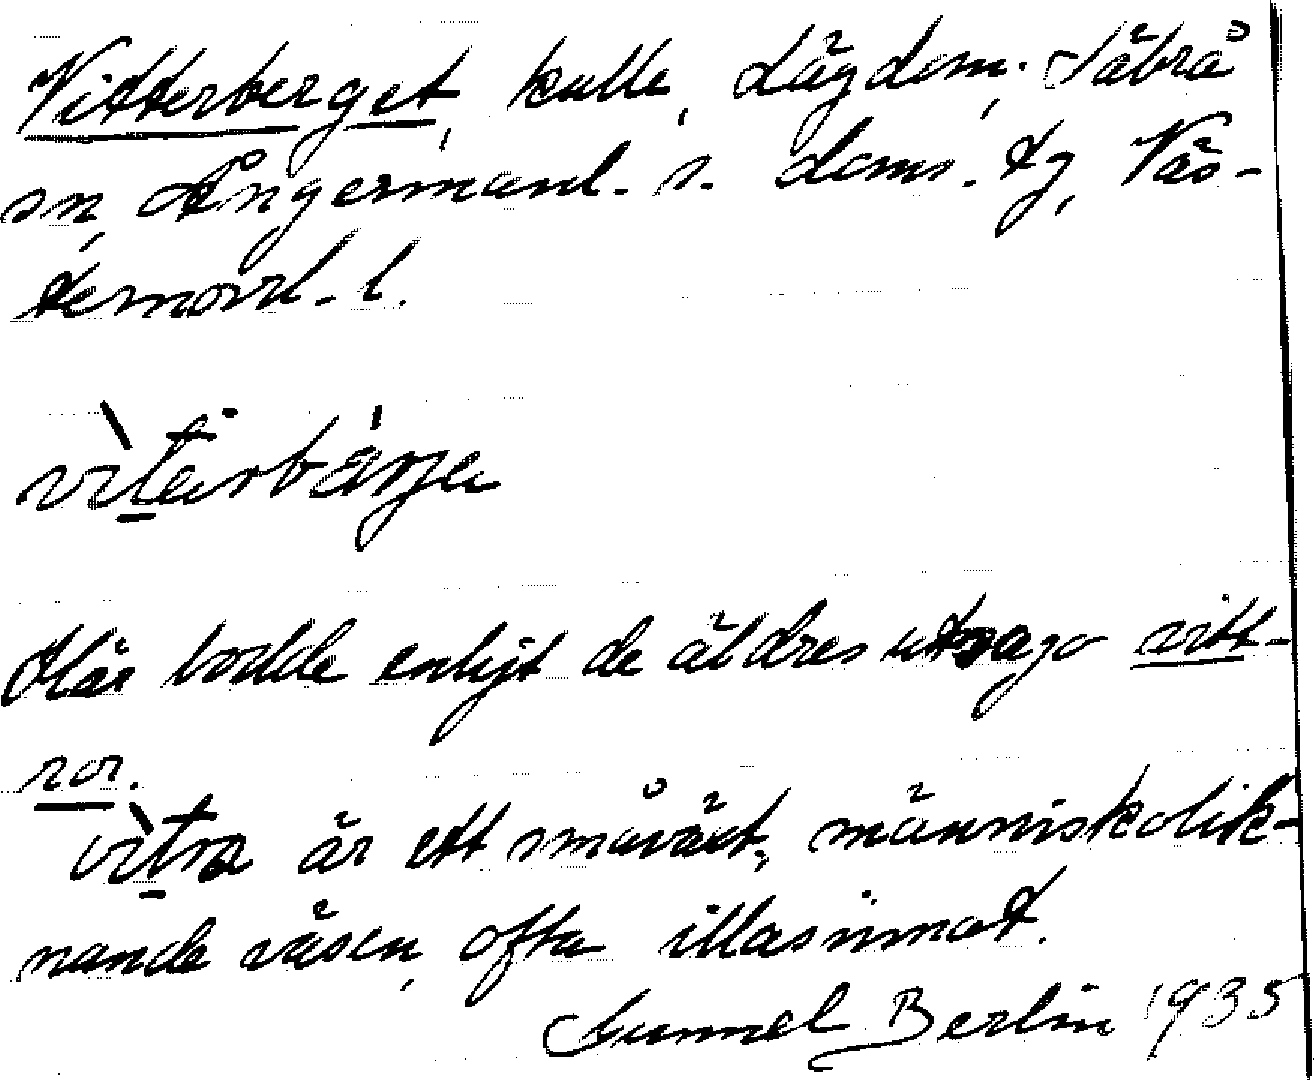 Vitterberget, kulle, Lägdom, Säbrå
sn, Ångermanl. s. doms. tg, Väs-
ternorrl. l.
vìtärbärjə
Här bodde enligt de äldres utsago vitt-
ror.
vìtra är ett småväxt, människolik-
nande väsen, ofta illasinnat.
Gunnel Berlin 1935